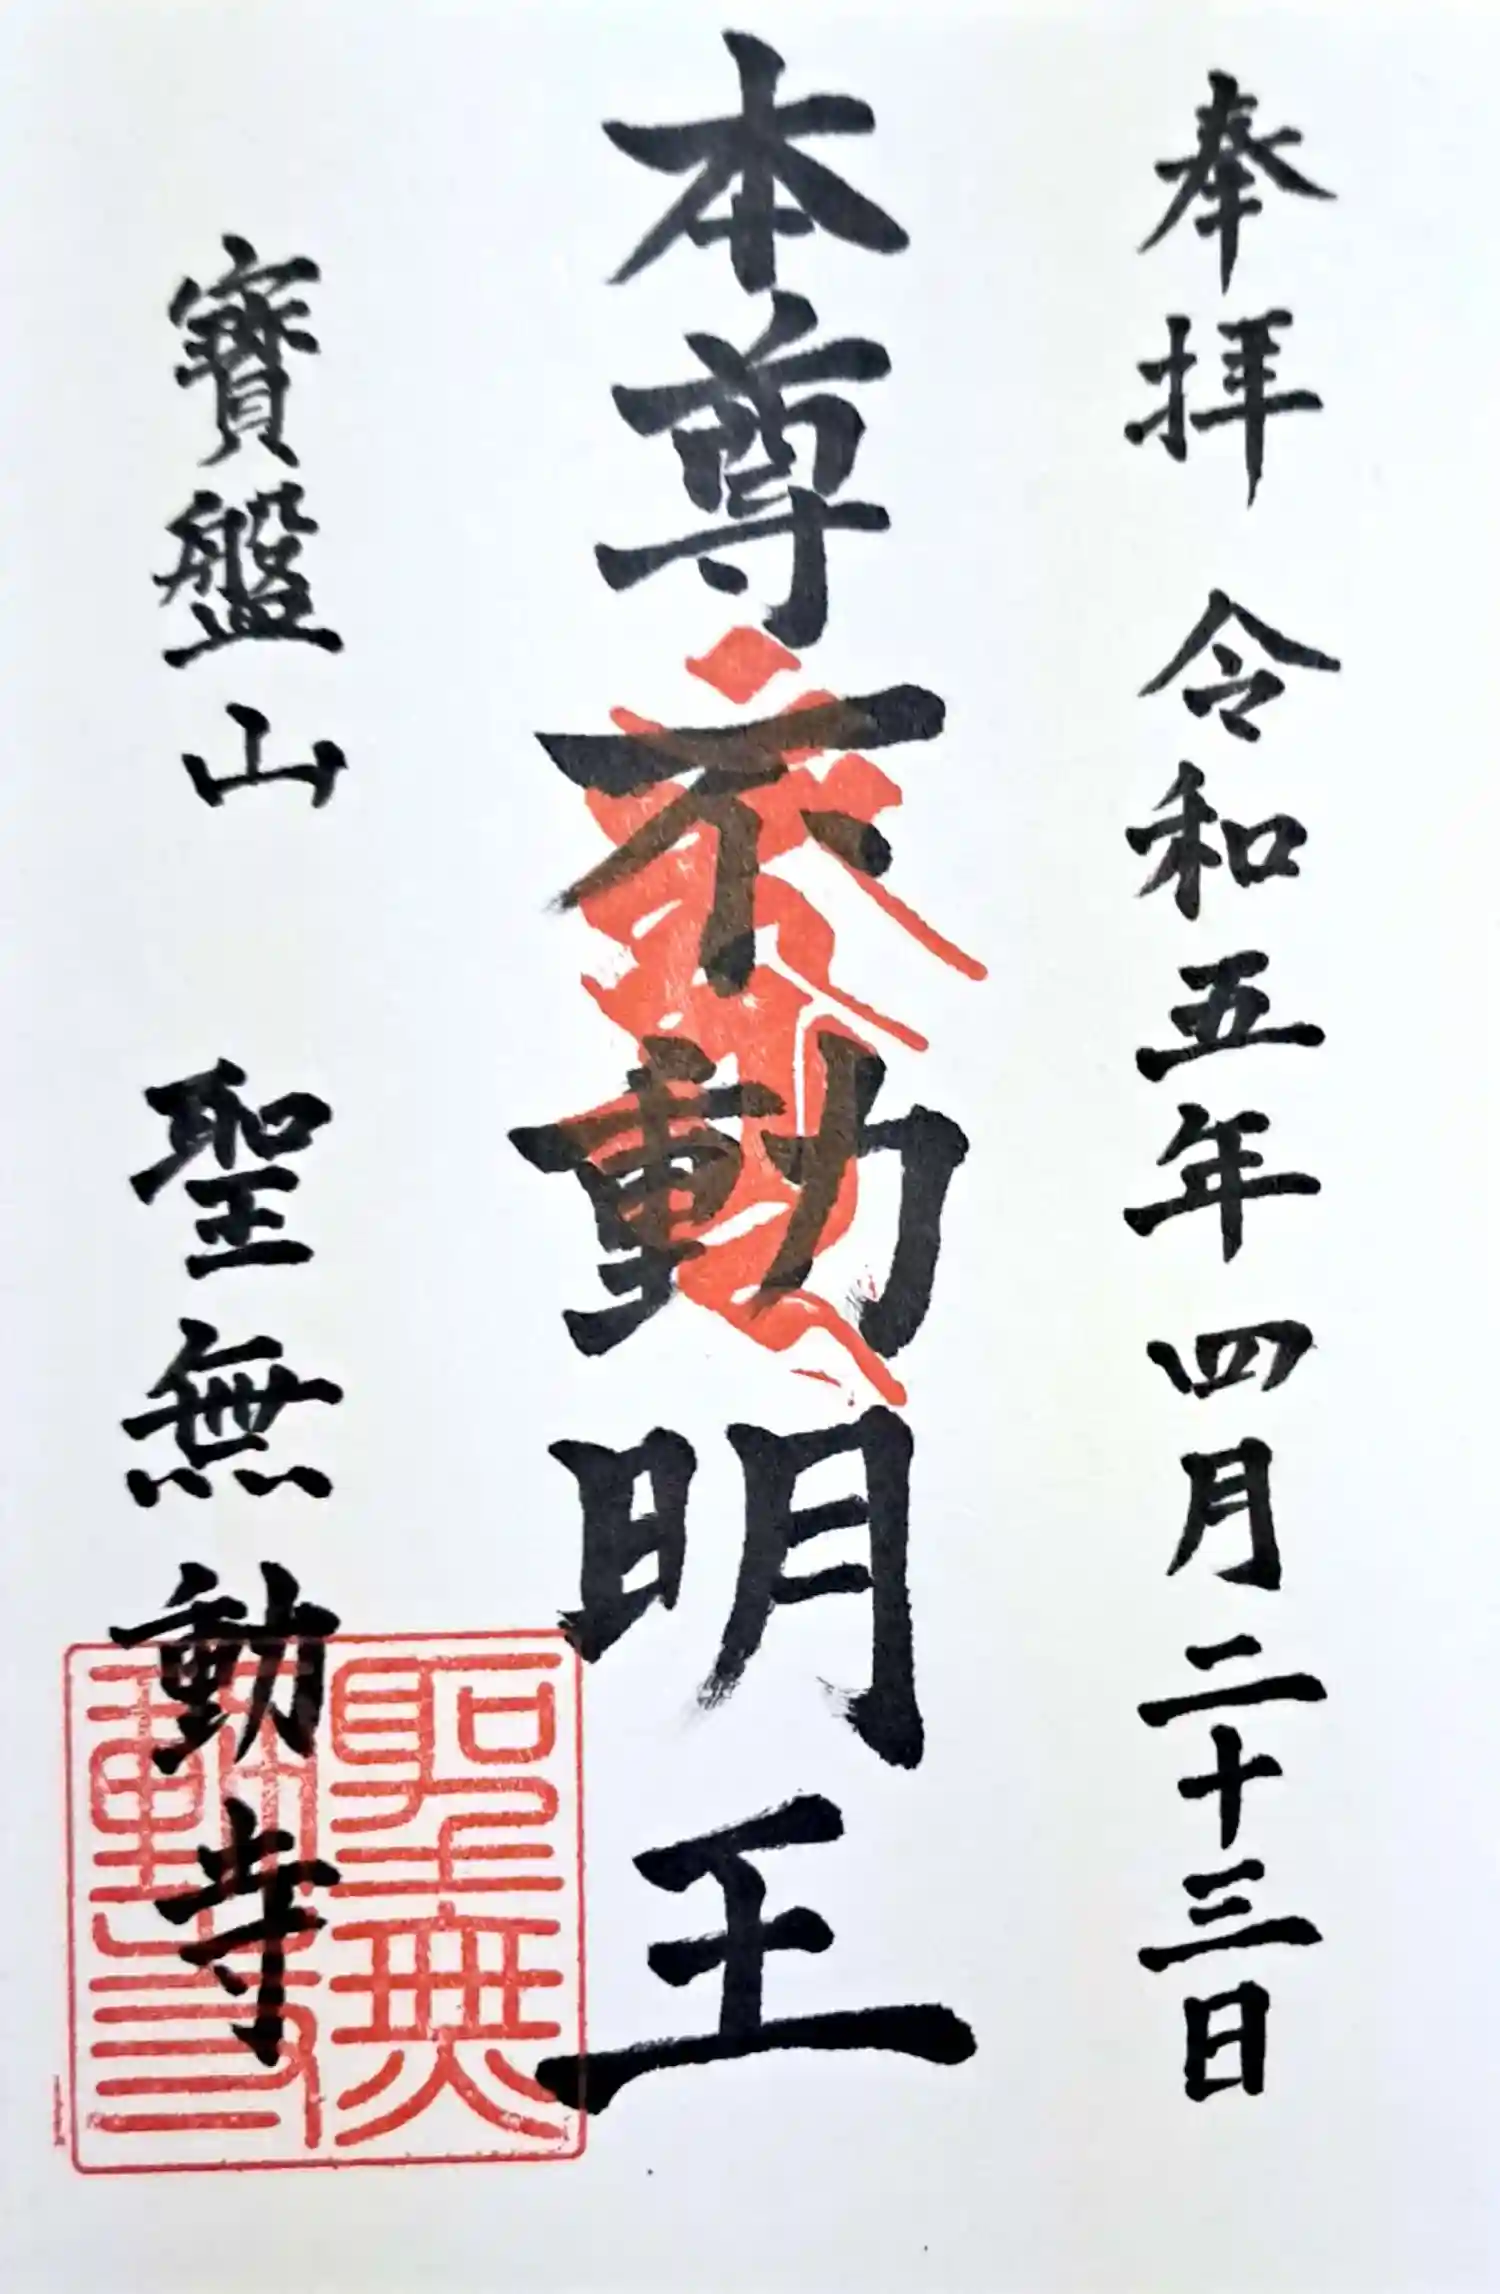 奉拝 令和五年四月二十三日
本尊不動明王
寳盤山 聖無動寺
聖無
動寺